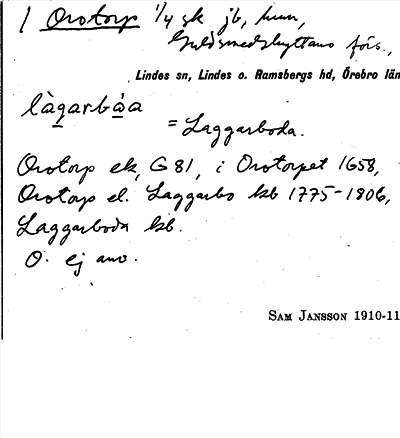 1 Orotorp 1/4 sk jb, kun,
Guldsmedshyttans förs.,
Lindes sn, Lindes o. Ramsbergs hd, Örebro län
làgarbȧa
= Laggarboda.
Orotorp ek, G 81, i Orotorpet 1658,
Orotorp el. Laggarbo kb 1775-1806,
Laggarboda kb.
O. ej anv.
SAM JANSSON 1910-11